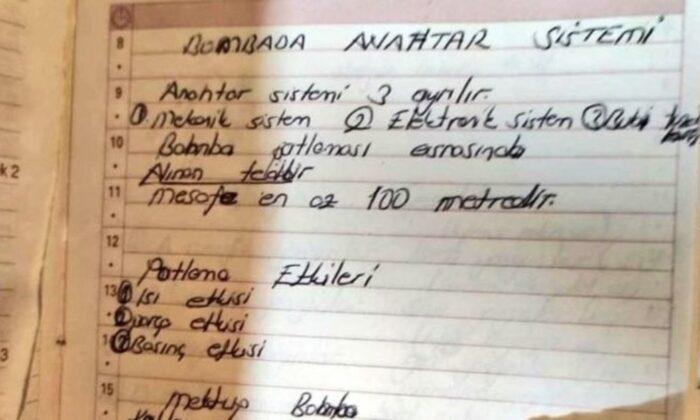 8 BOMBADA ANAHTAR SİSTEMİ
9 Anahtar sistemi 3 ayrılır.
① Mekanik sistem ② Elektronik sistem ③
10 Bomba patlaması esnasında
Alınan tedbir
11 Mesafe en az 100 metredir.
12
Patlama Etkileri
13 ① Isı etkisi
② Parça etkisi
③ Basınç etkisi
15
Mektup Bomba
k 2
3